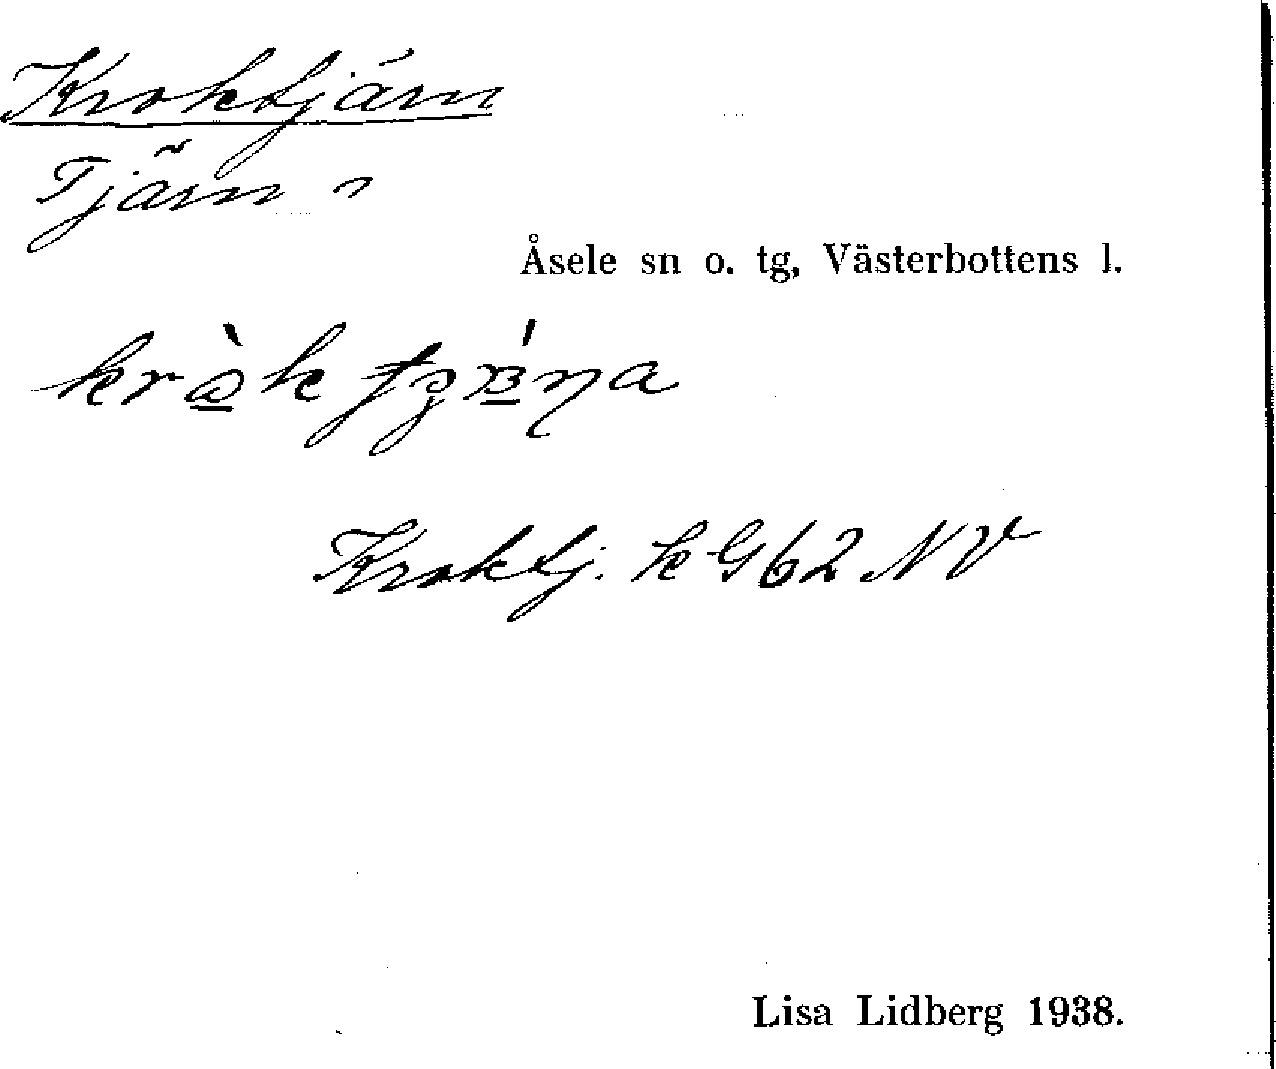 Kroktjärn
Tjärn
Åsele sn o. tg, Västerbottens l.
Kroktj. k G62 NV
Lisa Lidberg 1938.